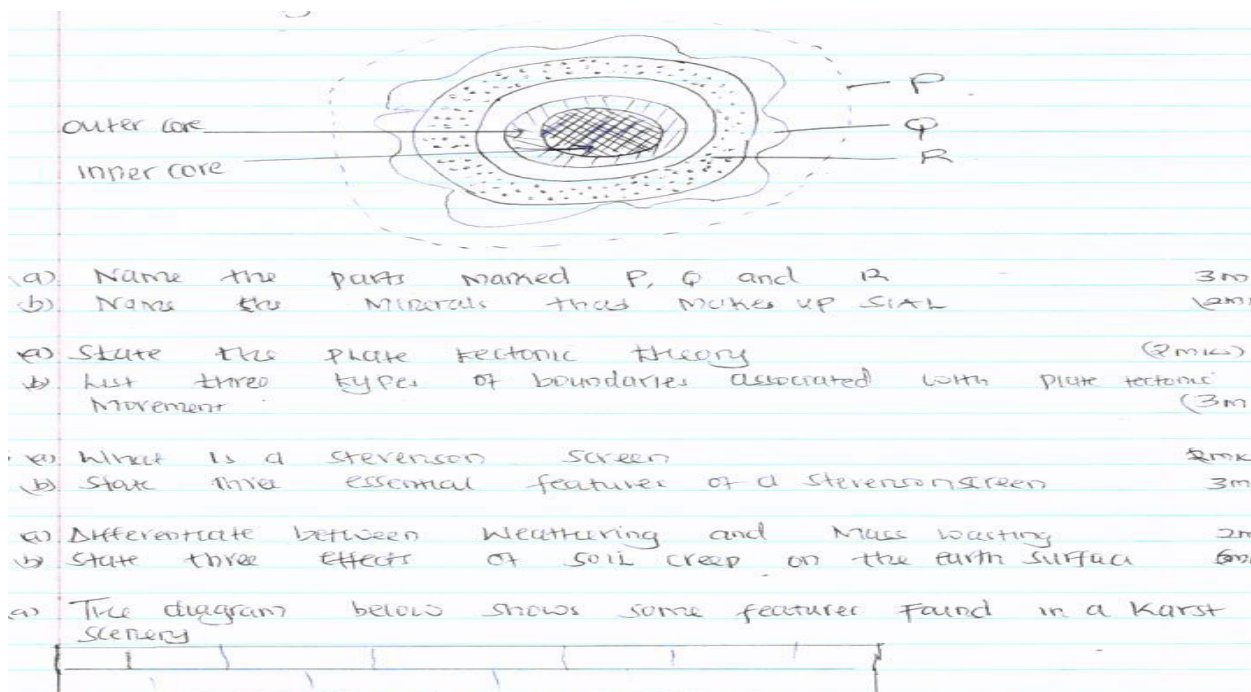 P
outer core
Q
R
inner core
a) Name the parts marked P, Q and R 3m
b) Name the Minerals that makes up SIAL (2m
a) State the plate tectonic theory (2mks)
b) List three types of boundaries associated with plate tectonic
Movement (3m
a) What is a stevenson screen 2mk
b) State three essential features of a stevenson screen 3m
a) Differentiate between Weathering and Mass wasting 2m
b) State three effects of soil creep on the earth surface
a) The diagram below shows some features found in a Karst
scenery